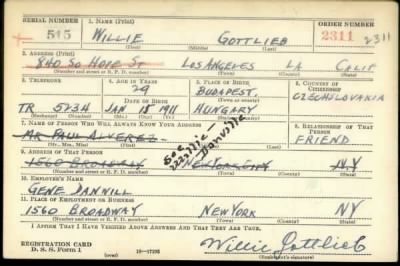 SERIAL NUMBER 1. NAME (Print) ORDER NUMBER
515 WILLIE GOTTLIEB 2311 2311
(First) (Middle) (Last)
2. ADDRESS (Print)
840 SO HOPE ST LOS ANGELES LA CALIF
(Number and street or R. F. D. number) (Town) (County) (State)
3. TELEPHONE 4. AGE IN YEARS 5. PLACE OF BIRTH 6. COUNTRY OF CITIZENSHIP
29 BUDAPEST,
DATE OF BIRTH (Town or county)
TR 5234 JAN 18 1911 HUNGARY CZECHSLOVAKIA
(Exchange) (No.) (Mo.) (Day) (Yr.) (State or country)
7. NAME OF PERSON WHO WILL ALWAYS KNOW YOUR ADDRESS 8. RELATIONSHIP OF THAT PERSON
MR PAUL ALVEREZ FRIEND
(Mr., Mrs., Miss) (First) (Middle) (Last)
See Willie Danville
9. ADDRESS OF THAT PERSON
1560 BROADWAY NEW YORK CITY N.Y
(Number and street or R. F. D. number) (Town) (County) (State)
10. EMPLOYER'S NAME
GENE DANNILL
11. PLACE OF EMPLOYMENT OR BUSINESS
1560 BROADWAY NEW YORK NY
(Number and street or R. F. D. number) (Town) (County) (State)
I AFFIRM THAT I HAVE VERIFIED ABOVE ANSWERS AND THAT THEY ARE TRUE.
REGISTRATION CARD
D. S. S. Form 1 16—17105 Willie Gottlieb
(Registrant's signature)